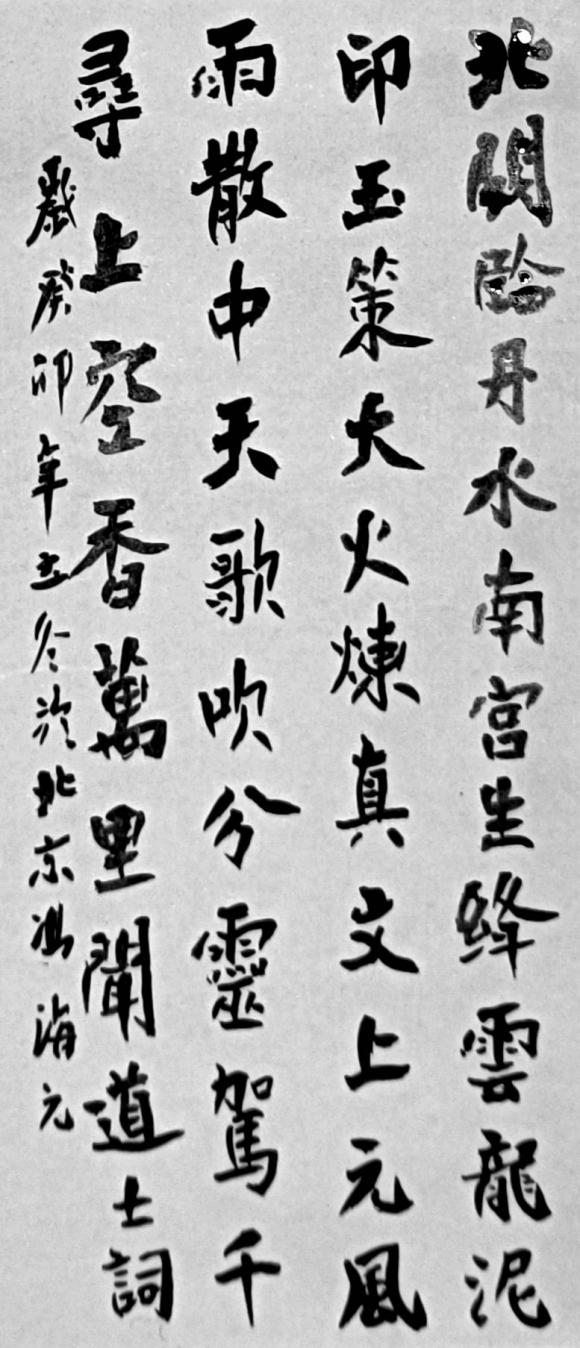 北闕臨丹水南宮生絳雲龍泥
印玉策大火煉真文上元風
雨散中天歌吹兮靈駕千
尋上空香萬里聞道士詞
歲癸卯年立冬於北京馮海元